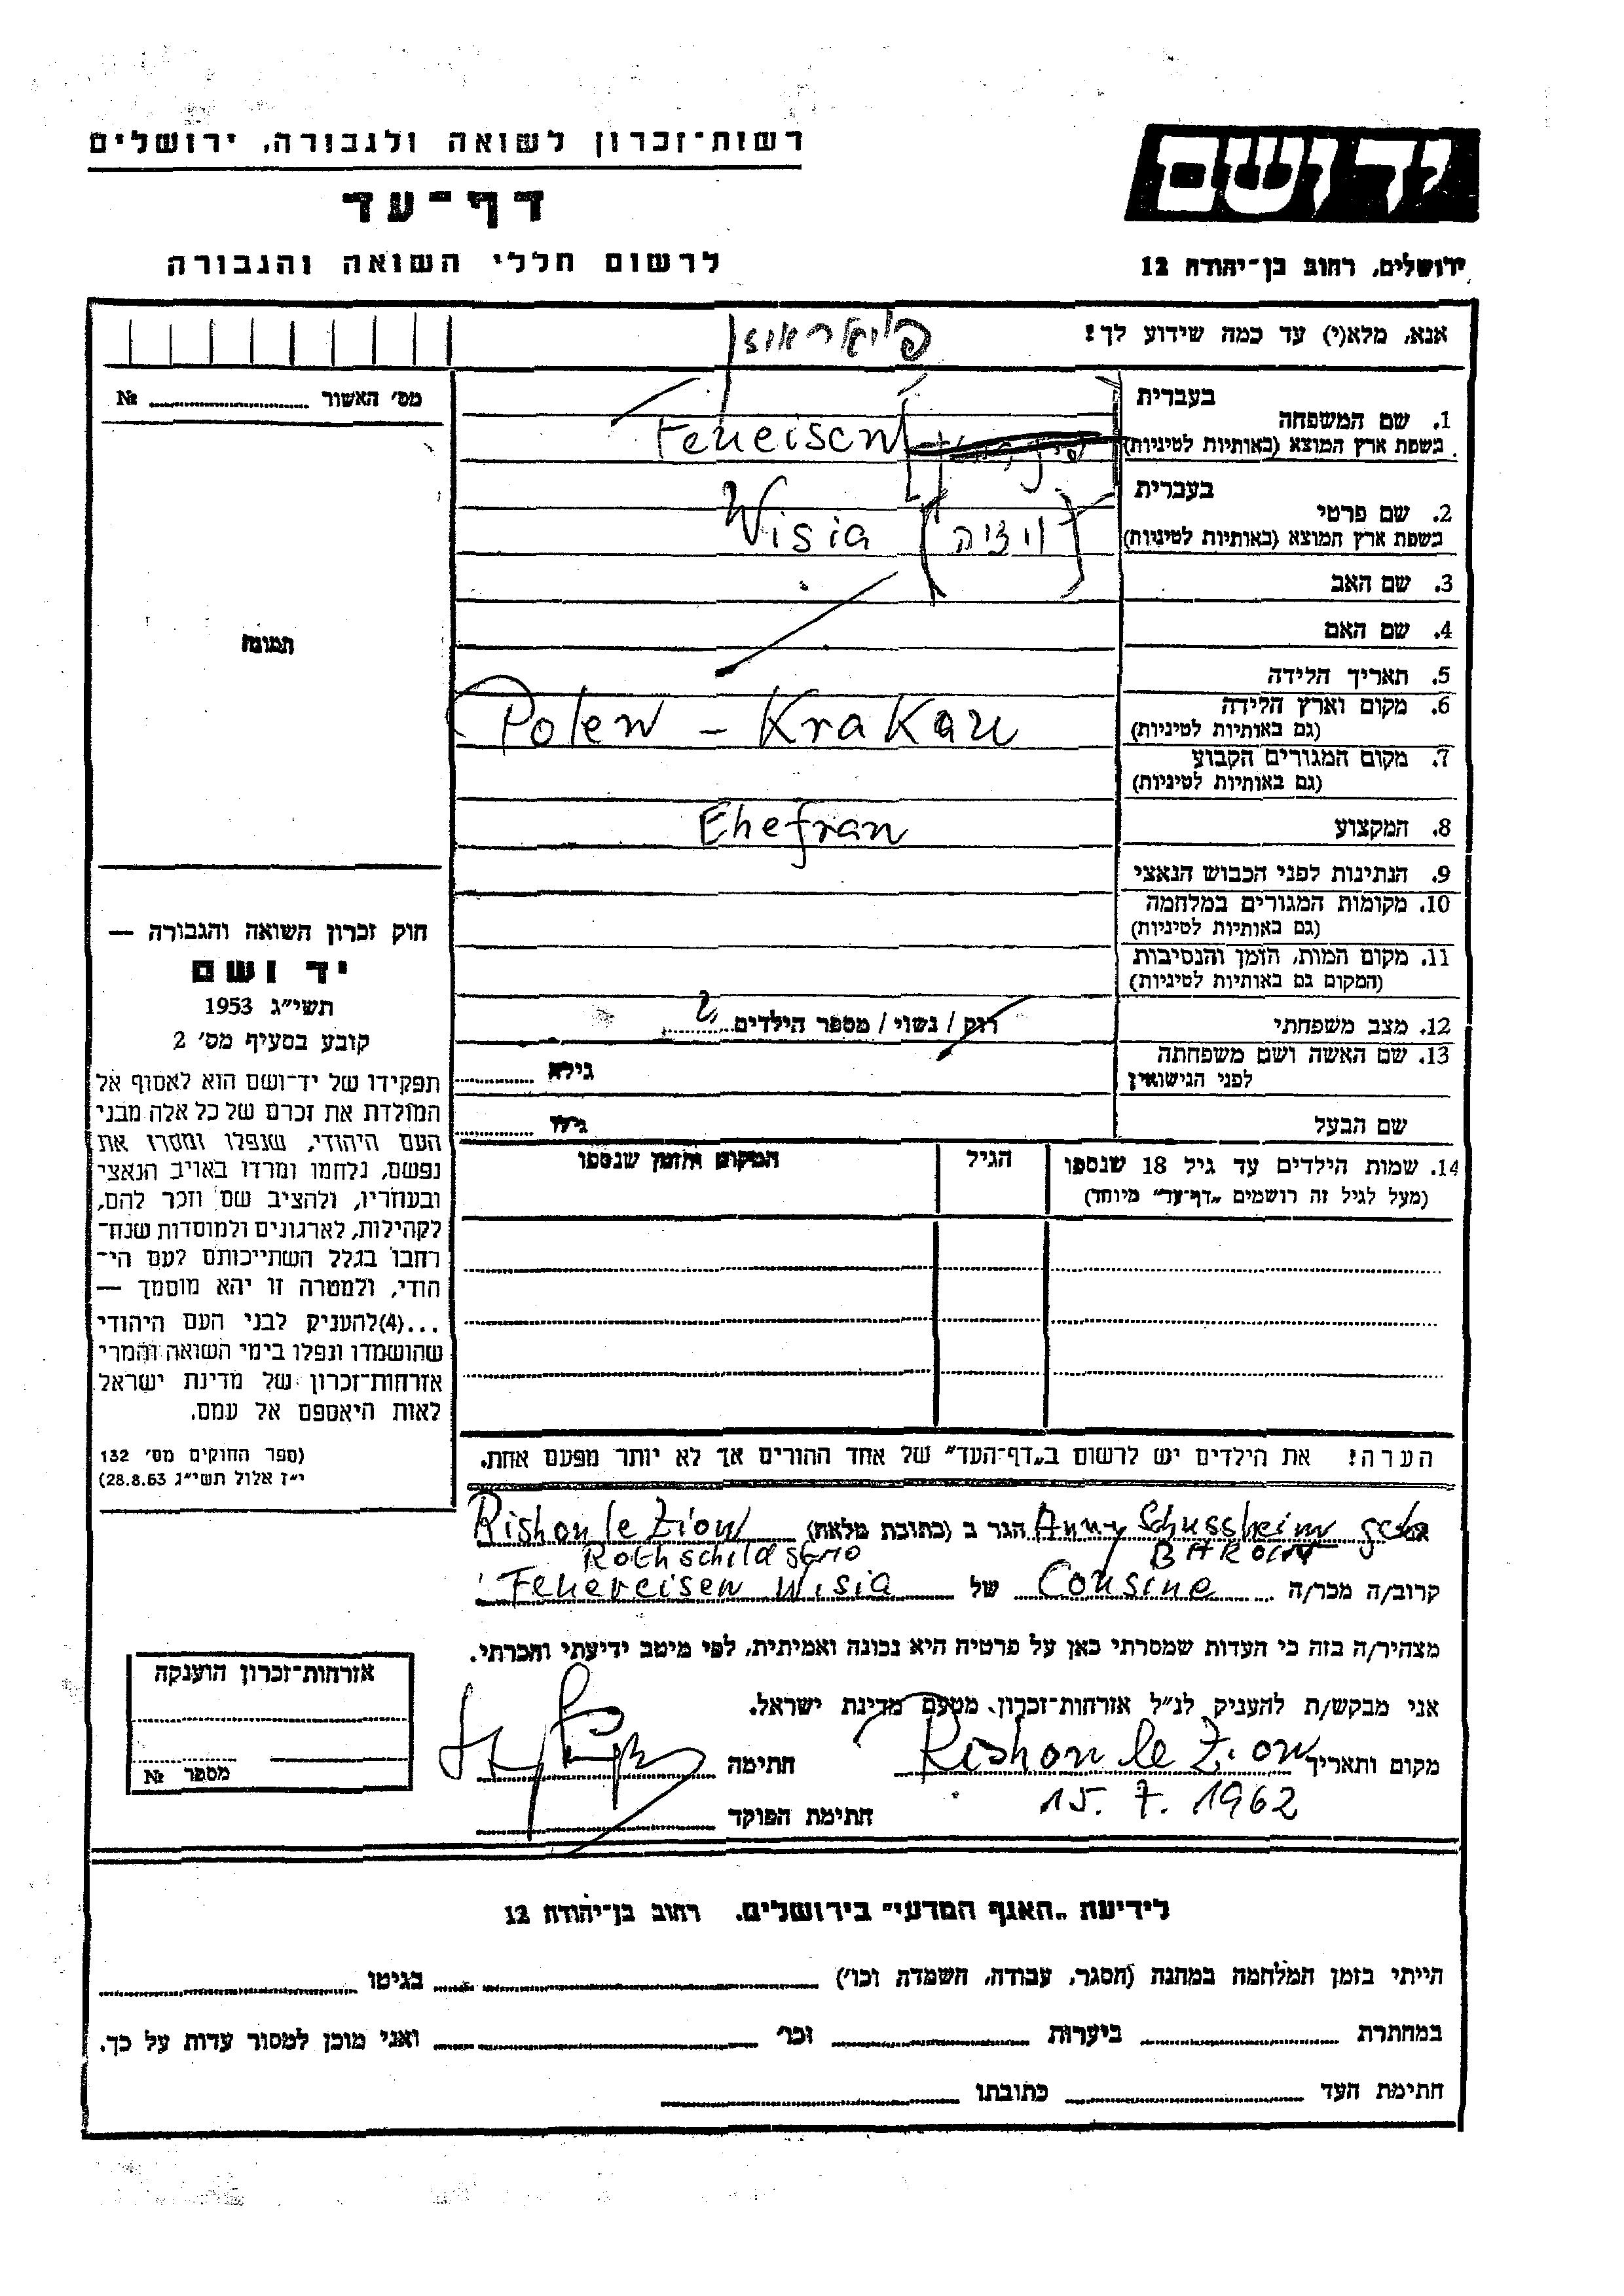 רשות־זכרון לשואה ולגבורה, ירושלים
יד ושם
דף־עד
לרשום חללי השואה והגבורה
ירושלים, רחוב בן־יהודה 12
אנא, מלא(י) עד כמה שידוע לך!
מס׳ האשור № 
בעברית
1. שם המשפחה
בשפת ארץ המוצא (באותיות לטיניות)
Feueisen
בעברית
2. שם פרטי
בשפת ארץ המוצא (באותיות לטיניות)
Wisia (ויזיה)
3. שם האב
4. שם האם
תמונה
5. תאריך הלידה
6. מקום וארץ הלידה
(גם באותיות לטיניות)
Polen - Krakau
7. מקום המגורים הקבוע
(גם באותיות לטיניות)
8. המקצוע
Ehefrau
9. הנתינות לפני הכבוש הנאצי
10. מקומות המגורים במלחמה
(גם באותיות לטיניות)
11. מקום המות, הזמן והנסיבות
(המקום גם באותיות לטיניות)
12. מצב משפחתי
רוק / נשוי / מספר הילדים 2
13. שם האשה ושם משפחתה
לפני הנישואין
גילה
שם הבעל
גילו
14. שמות הילדים עד גיל 18 שנספו
(מעל לגיל זה רושמים „דף־עד״ מיוחד)
הגיל
המקום והזמן שנספו
הערה! את הילדים יש לרשום ב„דף־העד״ של אחד ההורים אך לא יותר מפעם אחת.
חוק זכרון השואה והגבורה —
יד ושם
תשי״ג 1953
קובע בסעיף מס׳ 2
תפקידו של יד־ושם הוא לאסוף אל
המולדת את זכרם של כל אלה מבני
העם היהודי, שנפלו ומסרו את
נפשם, נלחמו ומרדו באויב הנאצי
ובעוזריו, ולהציב שם וזכר להם,
לקהילות, לארגונים ולמוסדות שנח־
רחבו בגלל השתייכותם לעם הי־
הודי, ולמטרה זו יהא מוסמך —
...(4)להעניק לבני העם היהודי
שהושמדו ונפלו בימי השואה והמרי
אזרחות־זכרון של מדינת ישראל
לאות היאספם אל עמם.
(ספר החוקים מס׳ 132
י״ז אלול תשי״ג 28.8.53)
אני Anny Schussheim geb. הגר ב (כתובת מלאה) Rishon le Zion
Rothschildstr 10
קרוב/ה מכר/ה Cousine של Feuereisen Wisia
מצהיר/ה בזה כי העדות שמסרתי כאן על פרטיה היא נכונה ואמיתית, לפי מיטב ידיעתי והכרתי.
אני מבקש/ת להעניק לנ״ל אזרחות־זכרון, מטעם מדינת ישראל.
מקום ותאריך Rishon le Zion חתימה
15. 7. 1962
חתימת הפוקד
אזרחות־זכרון הוענקה
מספר №
לידיעת „האגף המדעי״ בירושלים. רחוב בן־יהודה 12
הייתי בזמן המלחמה במחנה (הסגר, עבודה, השמדה וכו׳) בגיטו
במחתרת ביערות וכו׳ ואני מוכן למסור עדות על כך.
חתימת העד כתובתו